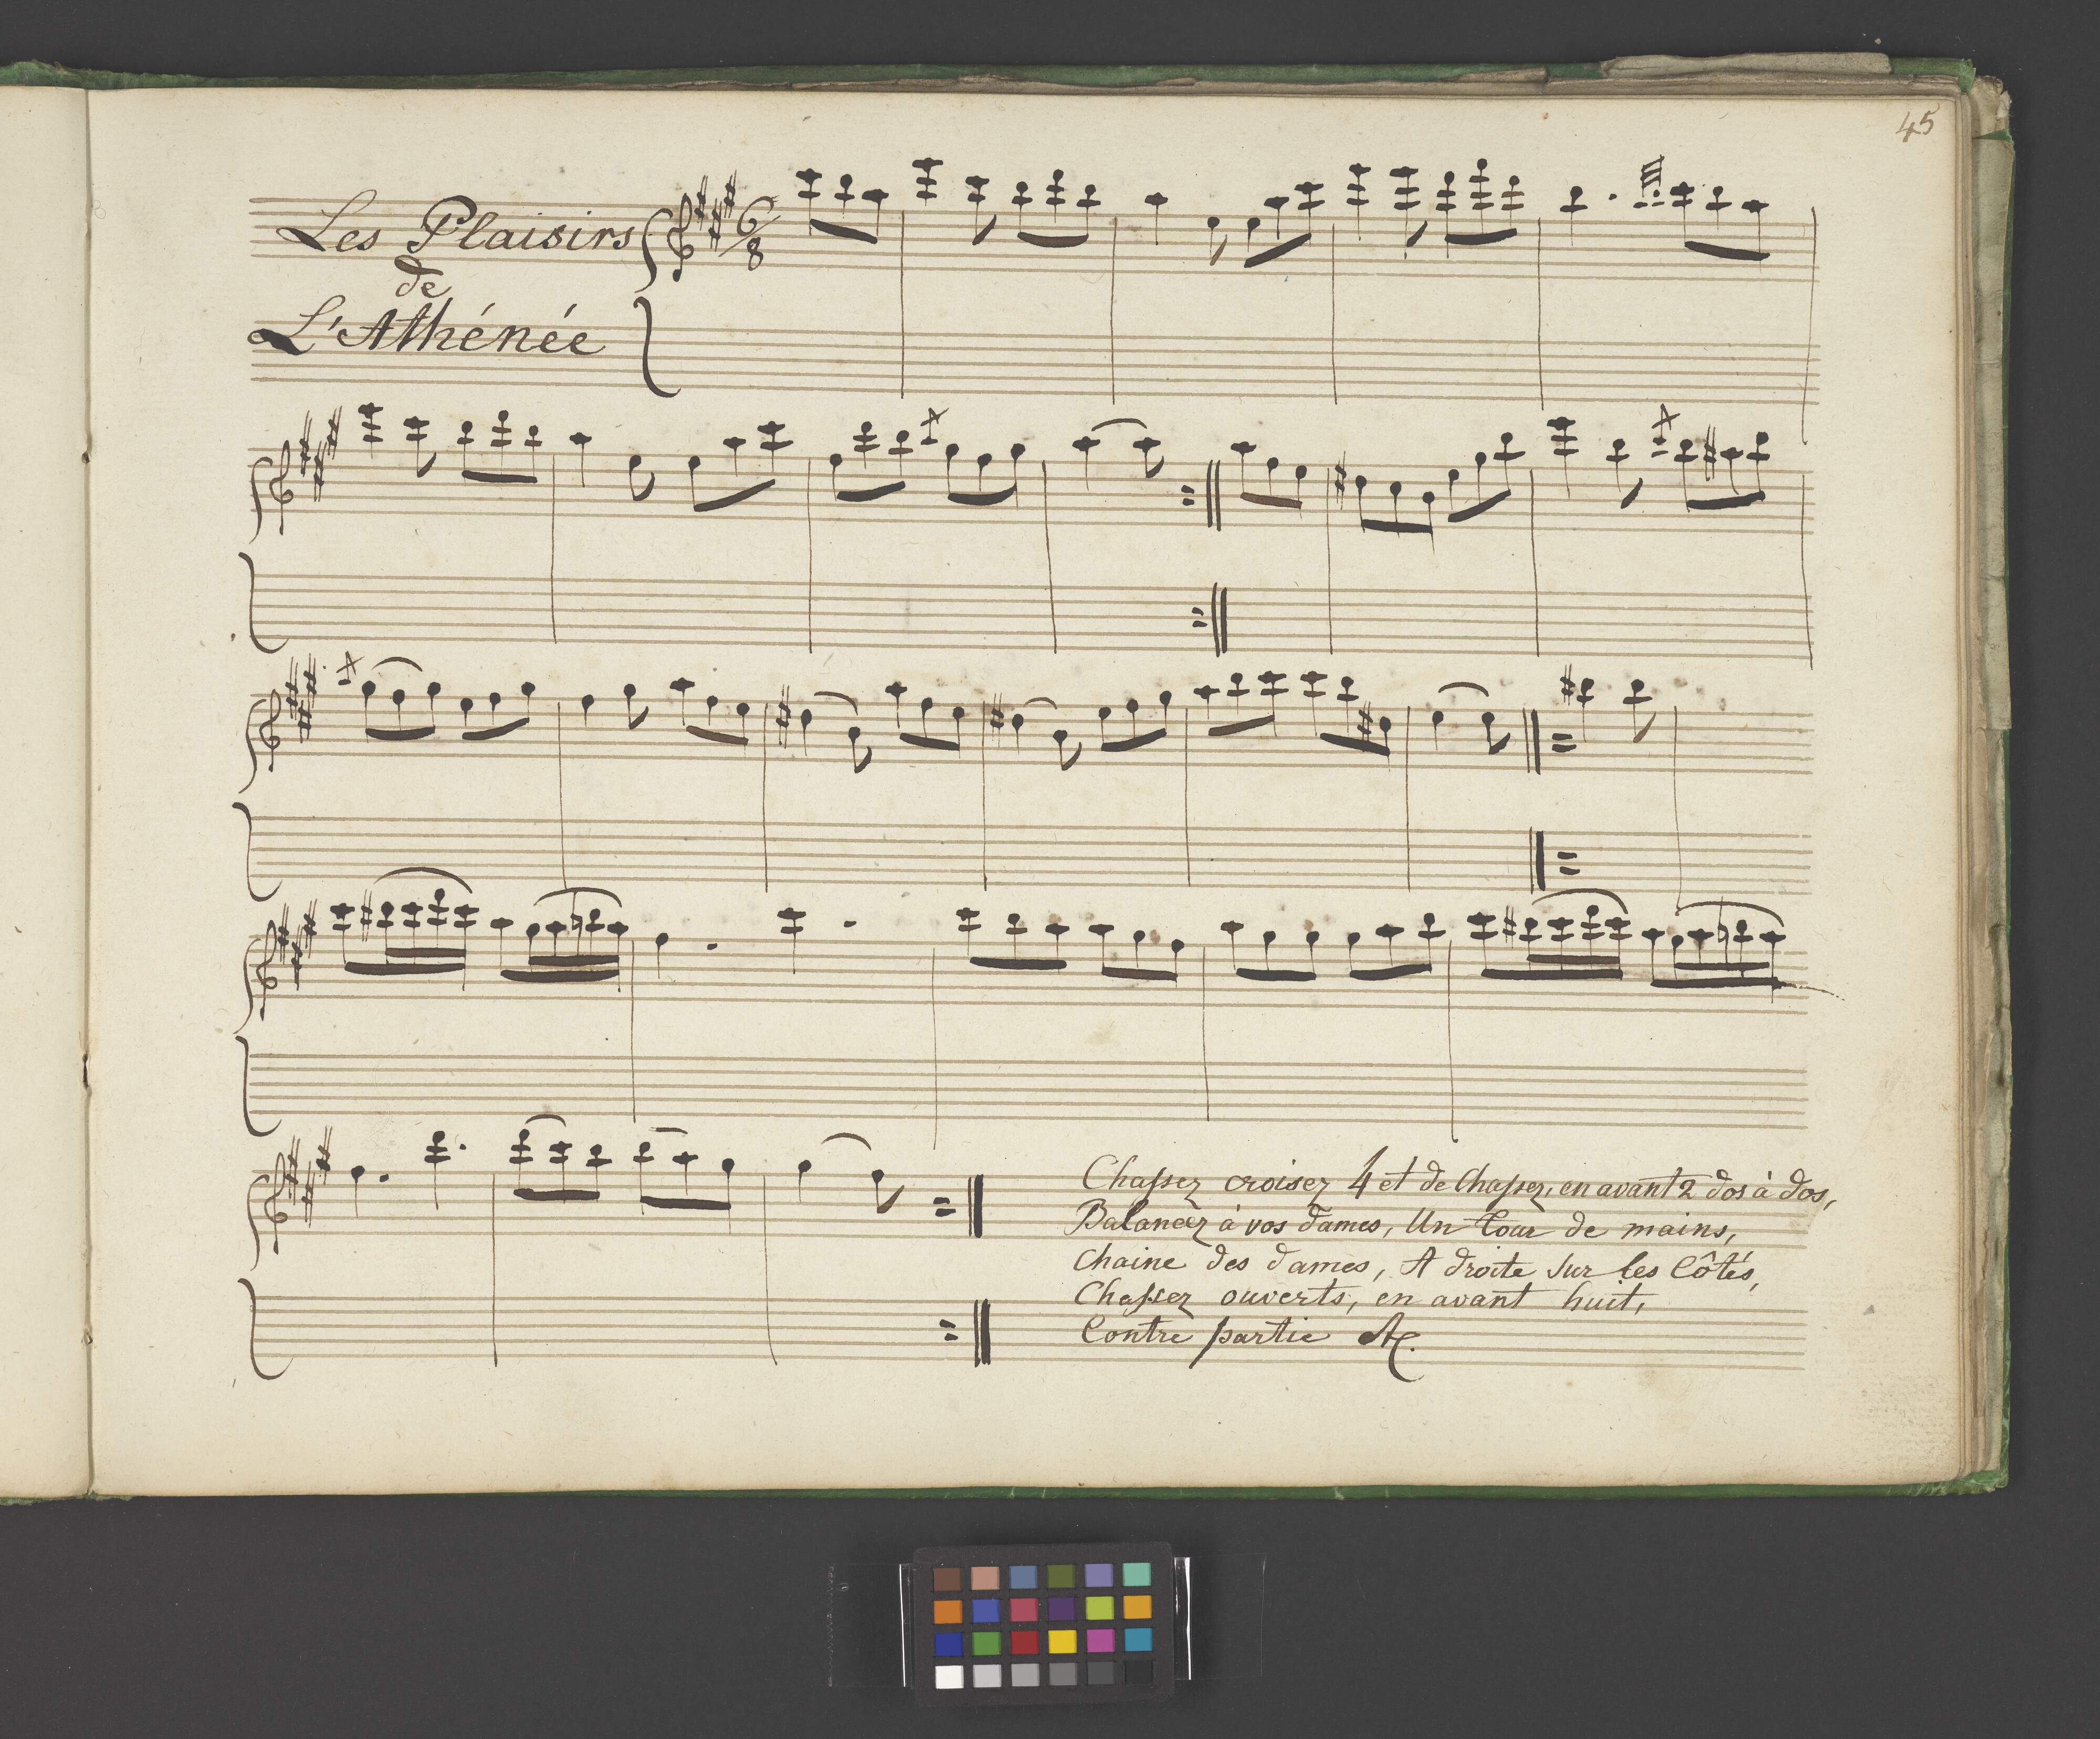 45
Les Plaisirs
de
L'Athénée
6/8
Chassez croisez 4 et de Chassez, en avant 2 dos à dos,
Balancez à vos dames, Un Tour de mains,
Chaine des dames, A droite sur les Côtés,
Chassez ouverts, en avant huit,
Contre partie &c.